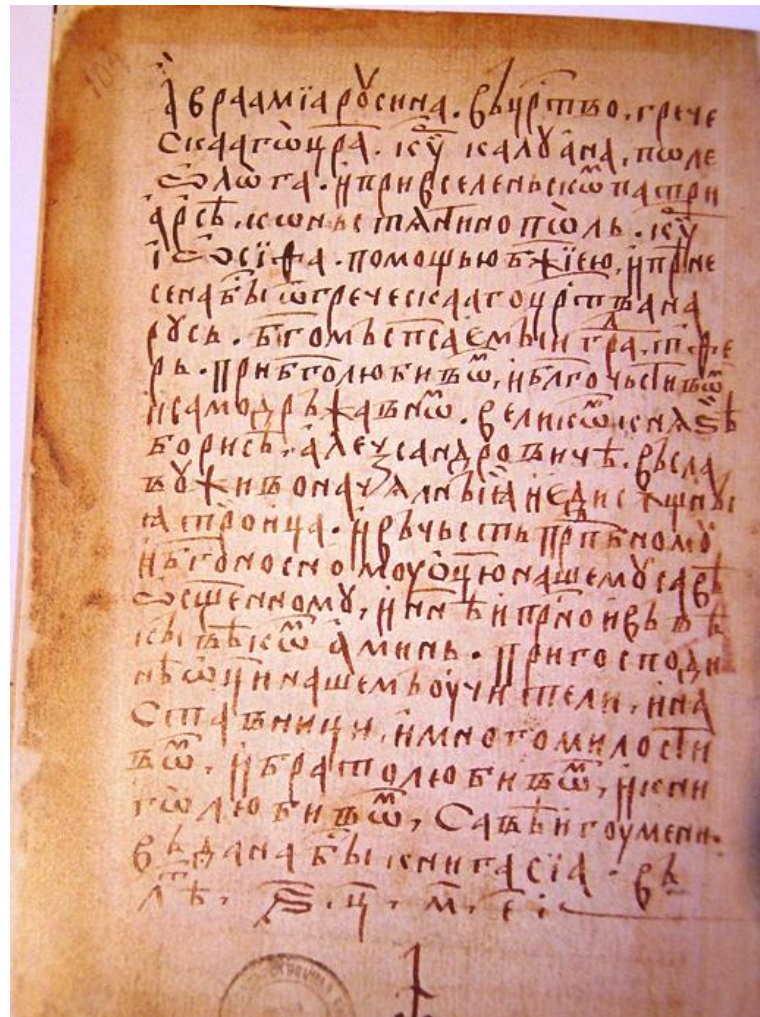 а҆враамїа рꙋсина. въ црⷭ҇тво. грече
скааго цр҃а. кѵⷬ҇ калꙋа҆на, пѡле
ѡлѡга. и҆ при вселеньскѡⷨ патри
а҆рсѣ. кѡньстѧнтинопѡль. кѵⷬ҇
і҆ѡсїфа. помощью бж҃їею, и҆ прⷩ҇е
сена бы́ ѿ греческааго црⷭ҇тва на
рꙋсь. бг҃омъ спсаемыи граⷣ, тфе
рь. при бг҃олюбивѡⷨ, и҆ блг҃очьстивѡⷨ
и самодръжавнѡⷨ. великѡⷨ кнѧѕѣ
борисѣ, а҆леѯандровичѣ. въ сла
вꙋ живоначѧлныѧ и҆ единосꙋщныѧ
троица. и҆ въ чьсть прпⷣбномꙋ
и бг҃оносномоу ѿц҃ю нашемꙋ савѣ
ѡсщ҃енномꙋ, и҆ нн҃ѣ и прⷭ҇но и въ вѣ
кы вѣкѡⷨ а҆минь. при господи
нѣ ѡц҃и нашемь оу҆чители, и҆ на
ставници, и҆ многомилости
вѡⷨ, и҆ братолюбивѡⷨ, и҆ кни
голюбивѡⷨ, Савѣ игоумени.
въдана бы́ книга сїа. въ
лⷮѣ. ѕ҃. ц҃. м҃. е҃: